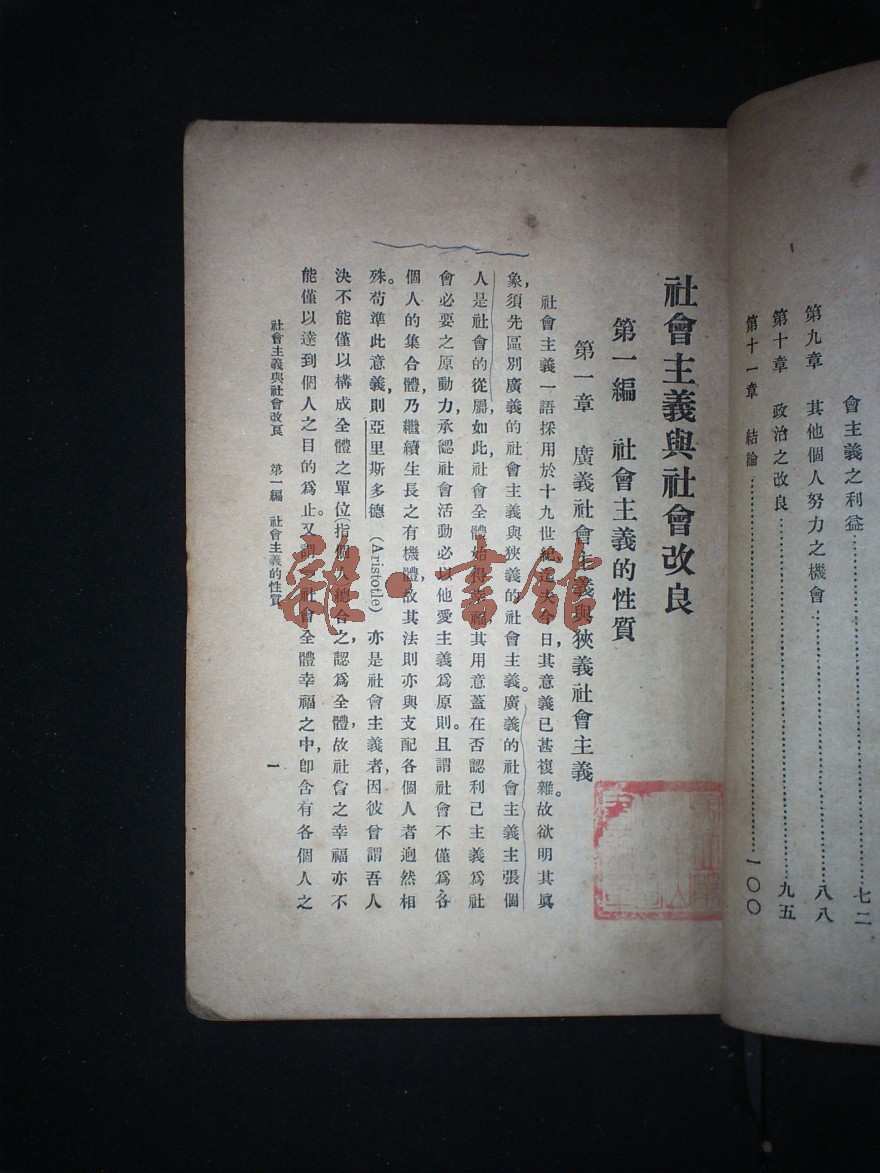 會主義之利益……七二
第九章　其他個人努力之機會……八八
第十章　政治之改良……九五
第十一章　結論……一〇〇
社會主義與社會改良
第一編　社會主義的性質
第一章　廣義社會主義與狹義社會主義
社會主義一語採用於十九世紀迄夫今日，其意義已甚複雜。故欲明其眞
象，須先區別廣義的社會主義與狹義的社會主義。廣義的社會主義主張個
人是社會的從屬，如此，社會全體始得幸福，其用意蓋在否認利己主義爲社
會必要之原動力，承認社會活動必以他愛主義爲原則。且謂社會不僅爲各
個人的集合體，乃繼續生長之有機體，故其法則亦與支配各個人者逈然相
殊。苟準此意義，則亞里斯多德 (Aristotle) 亦是社會主義者，因彼曾謂吾人
決不能僅以構成全體之單位（指個人）總合之，認爲全體，故社會之幸福亦不
能僅以達到個人之目的爲止。又謂社會全體幸福之中，卽含有各個人之
社會主義與社會改良　第一編　社會主義的性質
一
雜·書館